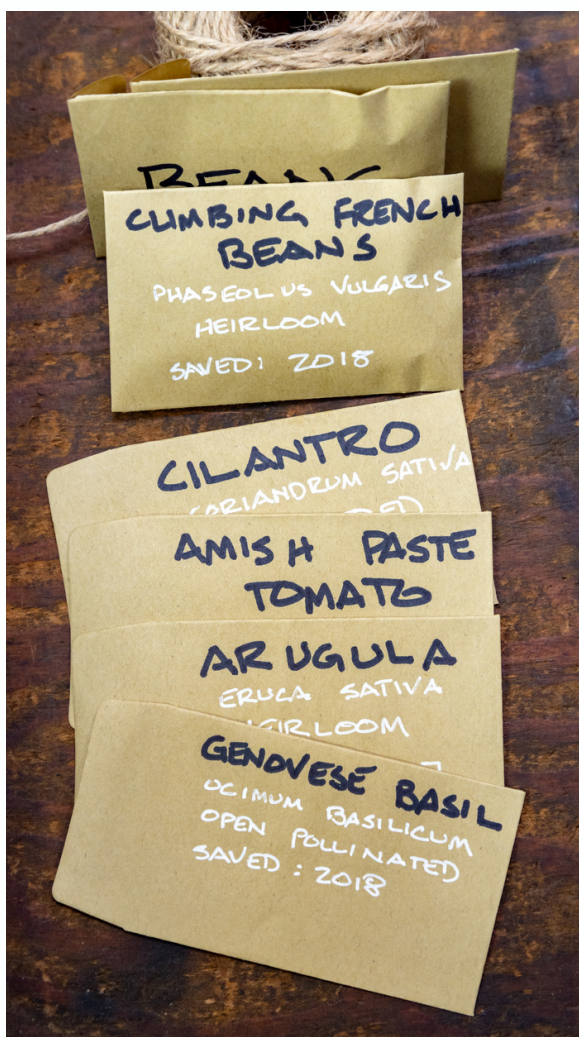 BEANS
CLIMBING FRENCH
BEANS
PHASEOLUS VULGARIS
HEIRLOOM
SAVED: 2018
CILANTRO
CORIANDRUM SATIVA
AMISH PASTE
TOMATO
ARUGULA
ERUCA SATIVA
HEIRLOOM
GENOVESE BASIL
OCIMUM BASILICUM
OPEN POLLINATED
SAVED: 2018